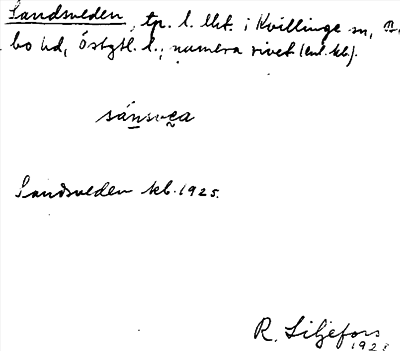 Sandsveden, tp. l. lht. i Kvillinge sn, B.
bo hd, Östgtl. l.; numera rivet (enl. kb).
sánsvea
Sandsveden kb. 1925.
R. Liljefors
1928